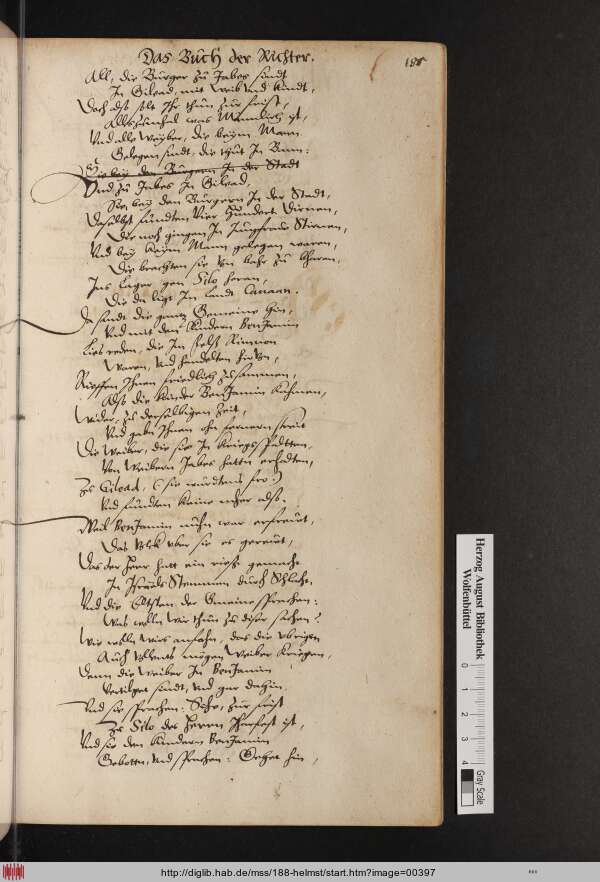 Das Buch der Richter.
188
All, die Burger zu Jabes sindt
In Gilead, mit Weib und Kindt,
Doch alst solt Ihr thun zur frist,
Alles zumahl was Mennlich ist,
Und alle Weyber, die beym Mann
Gelegen sindt, die thut In Bann:
Sie bey den Burgern In der Stadt
Und zu Jabes In Gilead,
Sie bey den Burgern In der Stadt,
Daselbst fundten Vier Hundert Dirnen,
Die noch giengen In Jungfraw Stirnen,
Und bey keym Mann gelegen waren,
Die brachten sie
Ins Lager gen Silo heran,
Die da ligt In Landt Canaan.
Da sandt die gantz Gemeine hin,
Und mit den Kindern BenJamin
Lies reden, die Im felß Rimmon
Waren, Und handelten
Rieffen Ihnen friedlich zusammen,
Alß die Kinder BenJamin kahmen,
Wider, zu derselbigen Zeit,
Und gabn Ihnen ohn fernern streit
Die Weiber, die sie In Kriegs
Von Weibern Jabes hatten erhalten,
Zu Gilead, (sie wurdten fro:)
Und fundten keine mher also.
Weil BenJamin nuhn war erfreut,
Das Volck uber sie es gereut,
Das der Herr hatt ein rieß gemacht
In Israels Stemmen durch Schlacht,
Und die Eltsten der Gmeine sprachen:
Was wolln wir thun zu diser sachen?
Wir wolln wirs anfahn, das die ubrigen
Auch mögen Weiber kriegen,
Denn die Weiber In BenJamin
Vertilget sindt, und gar dahin.
Und sie sprachen: Sihe, zur frist
Zu Silo des Herrn Jharfest ist,
Und sie den Kindern BenJamin
Gebotten, und sprachen: Gehet hin,
Herzog August Bibliothek
Wolfenbüttel
0 1 2 3 4
Gray Scale
http://diglib.hab.de/mss/188-helmst/start.htm?image=00397